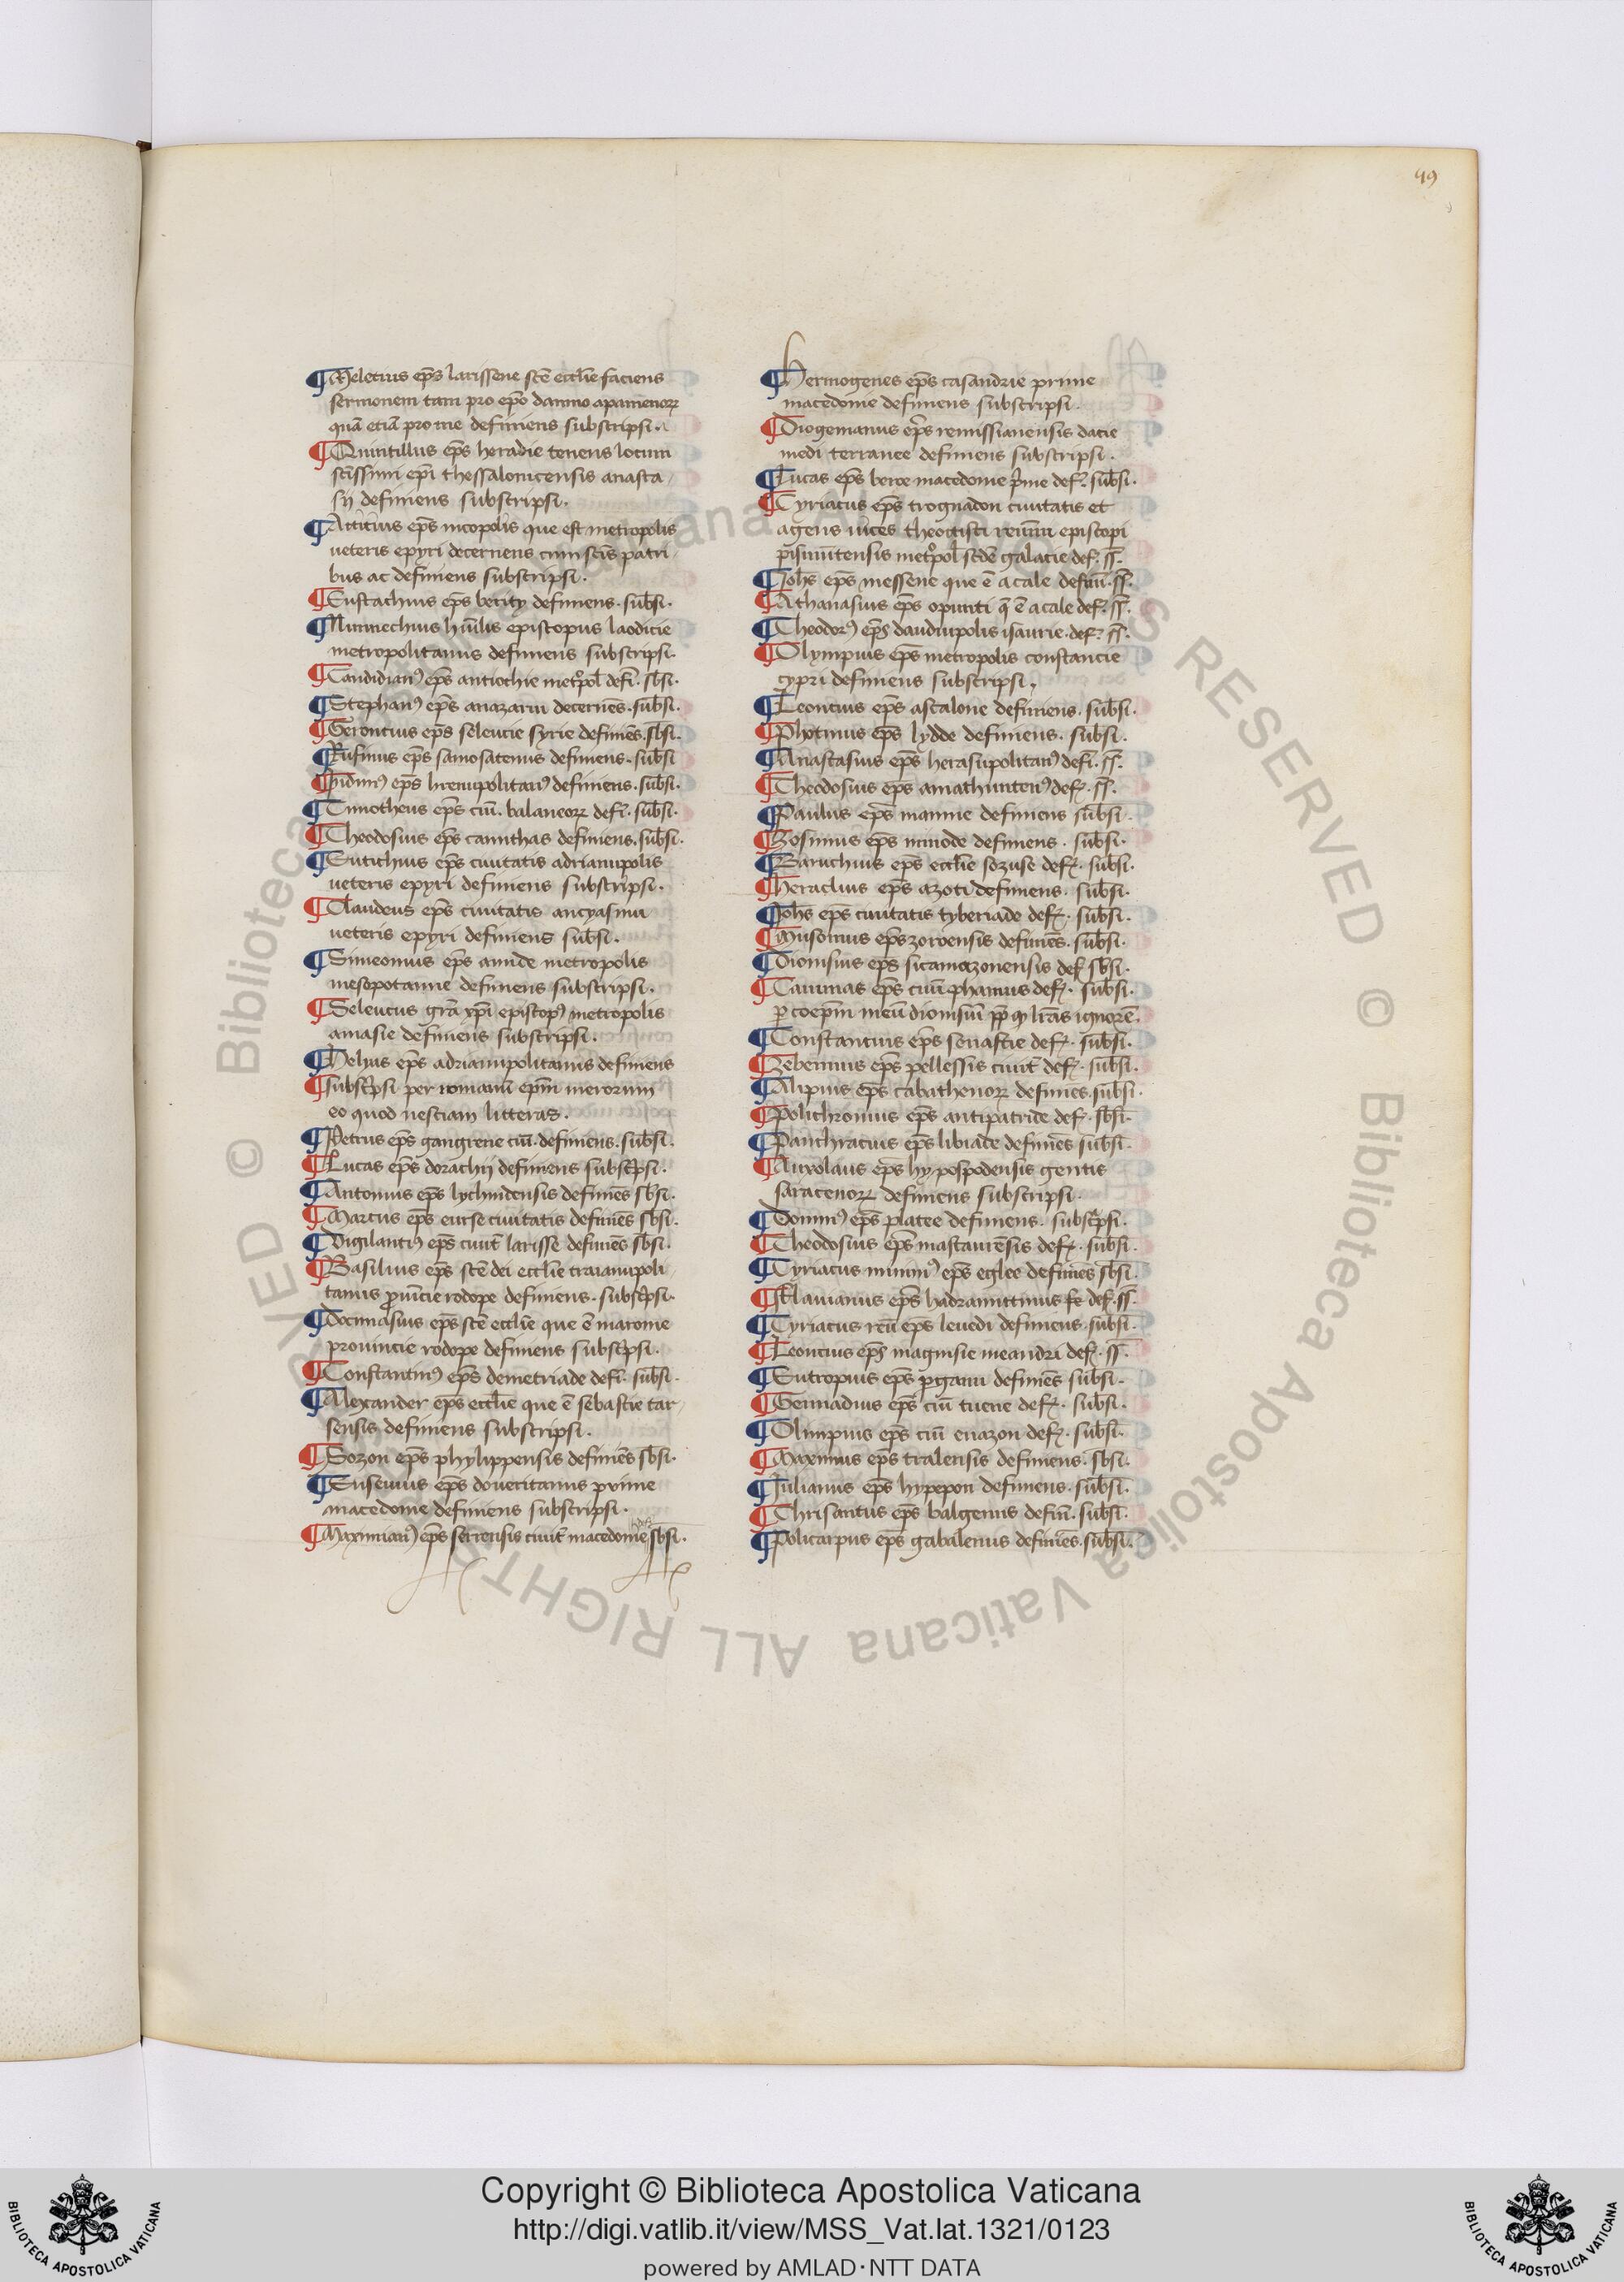 49
¶ Meletius ep̄s larissene sc̄e eccl̄ie faciens
sermonem tam pro ep̄o domno apamenoꝝ
quā etiā pro me definiens subscripsi.
¶ Quintillus ep̄s heraclie tenens locum
sc̄issimi ep̄i thessalonicensis anasta
sij definiens subscripsi.
¶ Atticus ep̄s nicopolis que est metropolis
ueteris epyri decernens cum sc̄is patri
bus ac definiens subscripsi.
¶ Eustachius ep̄s berity definiens. sub̄si.
¶ Nunnechius hūilis episcopus laodicie
metropolitanus definiens subscripsi.
¶ Candidianꝰ ep̄s antiochie met̊pol̄ defī. sb̄si.
¶ Stephanꝰ ep̄s anazarui decernēs. sub̄si.
¶ Gerontius ep̄s seleucie syrie definiēs. sb̄si.
¶ Rufinus ep̄s samosatenus definiens. sub̄si
ep̄s definiens. sub̄si.
¶ Timotheus ep̄s ciū. balaneoꝝ defī. sub̄si.
¶ Theodosius ep̄s cannthas definiens. sub̄si.
¶ Eutichius ep̄s ciuitatis adrianupolis
ueteris epyri definiens subscripsi.
¶ Claudeus ep̄s ciuitatis ancyasmu
ueteris epyri definiens sub̄si.
¶ Simeonius ep̄s amide metropolis
mesopotamie definiens subscripsi.
¶ Seleucus grā xp̄i episcopꝰ metropolis
amasie definiens subscripsi.
¶ Helyas ep̄s adrianupolitanus definiens
¶ subsc̄psi per romanū ep̄m merorum
eo quod nesciam litteras.
¶ Petrus ep̄s gangrene ciū. definiens. sub̄si.
¶ Lucas ep̄s dorachij definiens subsc̄psi.
¶ Antonius ep̄s lychnidensis definiēs sb̄si.
¶ Marcus ep̄s euirse ciuitatis definiēs sb̄si.
¶ Vigilantiꝰ ep̄s ciuit̄ larisse definiēs sb̄si.
¶ Basilius ep̄s sc̄e dei eccl̄ie traianupoli
tanus ꝓuīcie rodope definiens. subsc̄psi.
¶ Docimasius ep̄s sc̄e eccl̄ie que ē maronie
prouincie rodope definiens subsc̄psi.
¶ Constantinꝰ ep̄s demetriade defī. sub̄si.
¶ Alexander ep̄s eccl̄ie que ē sebastie tar
sensis definiens subscripsi.
¶ Sozon ep̄s phylippensis definiēs sb̄si.
¶ Eusenius ep̄s doueritanus prime
macedonie definiens subscripsi.
¶ Maximianꝰ ep̄s serrensis ciuit̄ macedonie sb̄si.
¶ Hermogenes ep̄s casandrie prime
macedonie definiens subscripsi.
¶ Diogemanus ep̄s remissianensis dacie
medi terranee definiens subscripsi.
¶ Lucas ep̄s beroe macedonie p̄me def. sub̄si.
¶ Cyriacus ep̄s trognadon ciuitatis et
agens uices theoctisti episcopi
met̊pol̄ sc̄de galacie def. ss̄.
¶ Joh̄s ep̄s messene que ē acaie defin̄. ss̄.
¶ Athanasius ep̄s opunti q̄ ē acaie def. ss̄.
¶ Theodorꝰ ep̄s claudiupolis isaurie. def. ss̄.
¶ Olympius ep̄s metropolis constancie
cypri definiens subscripsi.
¶ Leoncius ep̄s ascalone definiens. sub̄si.
¶ Photinus ep̄s lydde definiens. subsi.
¶ Anastasius ep̄s herasupolitanꝰ defī. ss̄.
¶ Theodosius ep̄s amathuntenꝰ def. ss̄.
¶ Paulus ep̄s mannie definiens sub̄si.
¶ Zosimus ep̄s minode definiens. sub̄si.
¶ Baruchius ep̄s eccl̄ie sozuse def. sub̄si.
¶ Heraclius ep̄s azoti definiens. sub̄si.
¶ Joh̄s ep̄s ciuitatis tyberiade def. sub̄si.
¶ Musonius ep̄s zoroensis definiēs. sub̄si.
¶ Dionisius ep̄s sicamazonensis def sb̄si.
¶ Caiumas ep̄s ciuī phainus def. sub̄si.
ꝑ coep̄m meū dionisiū ꝓp̄ ꝙ lr̄as ignorē.
¶ Constantius ep̄s seuastie def. sub̄si.
¶ Zebennus ep̄s pellessis ciuit̄ def. sub̄si.
¶ Alipius ep̄s cabathenoꝝ definiēs. sub̄si.
¶ Polichronius ep̄s antipatride def. sb̄si.
¶ Panchratius ep̄s libiade definiēs sub̄si.
¶ Auxolaus ep̄s hypospodensis gentis
saracenoꝝ definiens subscripsi.
¶ Domnꝰ ep̄s platee definiens. subsc̄psi.
¶ Theodosius ep̄s mastaurēsis def. sub̄si.
¶ Cyriacus minimꝰ ep̄s eglee definiēs sb̄si.
¶ Flauianus ep̄s hadramittinus def. ss̄.
¶ Cyriacus reū ep̄s leuedi definiens. sub̄si.
¶ Leoncius ep̄s magnisie meandri def. ss̄.
¶ Eutropius ep̄s ꝑgami definiēs sub̄si.
¶ Gennadius ep̄s ciū tuene def. sub̄si.
¶ Olimpius ep̄s ciū euazon def. sub̄si.
¶ Maximus ep̄s tralensis definiens. sb̄si.
¶ Julianus ep̄s hypepon definiens. sub̄si.
¶ Chrisantus ep̄s balgenus defin̄. sub̄si.
¶ Policarpus ep̄s gabalenus definiēs. sub̄si.
© Biblioteca Apostolica Vaticana ALL RIGHTS RESERVED
Copyright © Biblioteca Apostolica Vaticana
http://digi.vatlib.it/view/MSS_Vat.lat.1321/0123
powered by AMLAD·NTT DATA
BIBLIOTECA APOSTOLICA VATICANA
BIBLIOTECA APOSTOLICA VATICANA